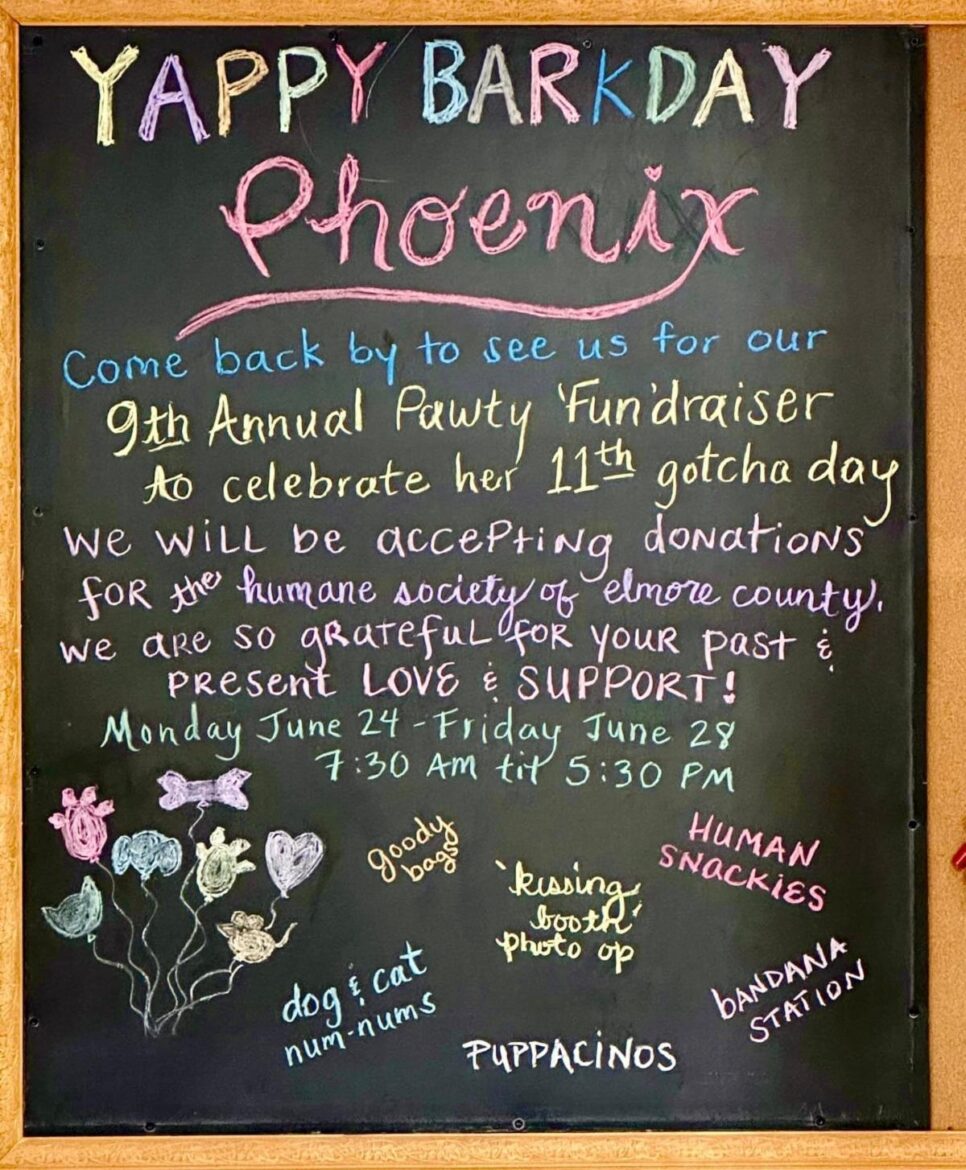 YAPPY BARKDAY
Phoenix
Come back by to see us for our
9th Annual Pawty 'Fun'draiser
to celebrate her 11th gotcha day
We WiLL be accePtiNg doNatioNS
foR the humane society of elmore county).
We aRe so gRatefuL foR youR past &
PResent LOVE & SUPPORT!
Monday June 24 - Friday June 28
7:30 AM til' 5:30 PM
goody
bags
HUMAN
SNACKIES
'kissing
booth'
photo op
dog & cat
num-nums
bANDANA
STATION
PUPPACINOS